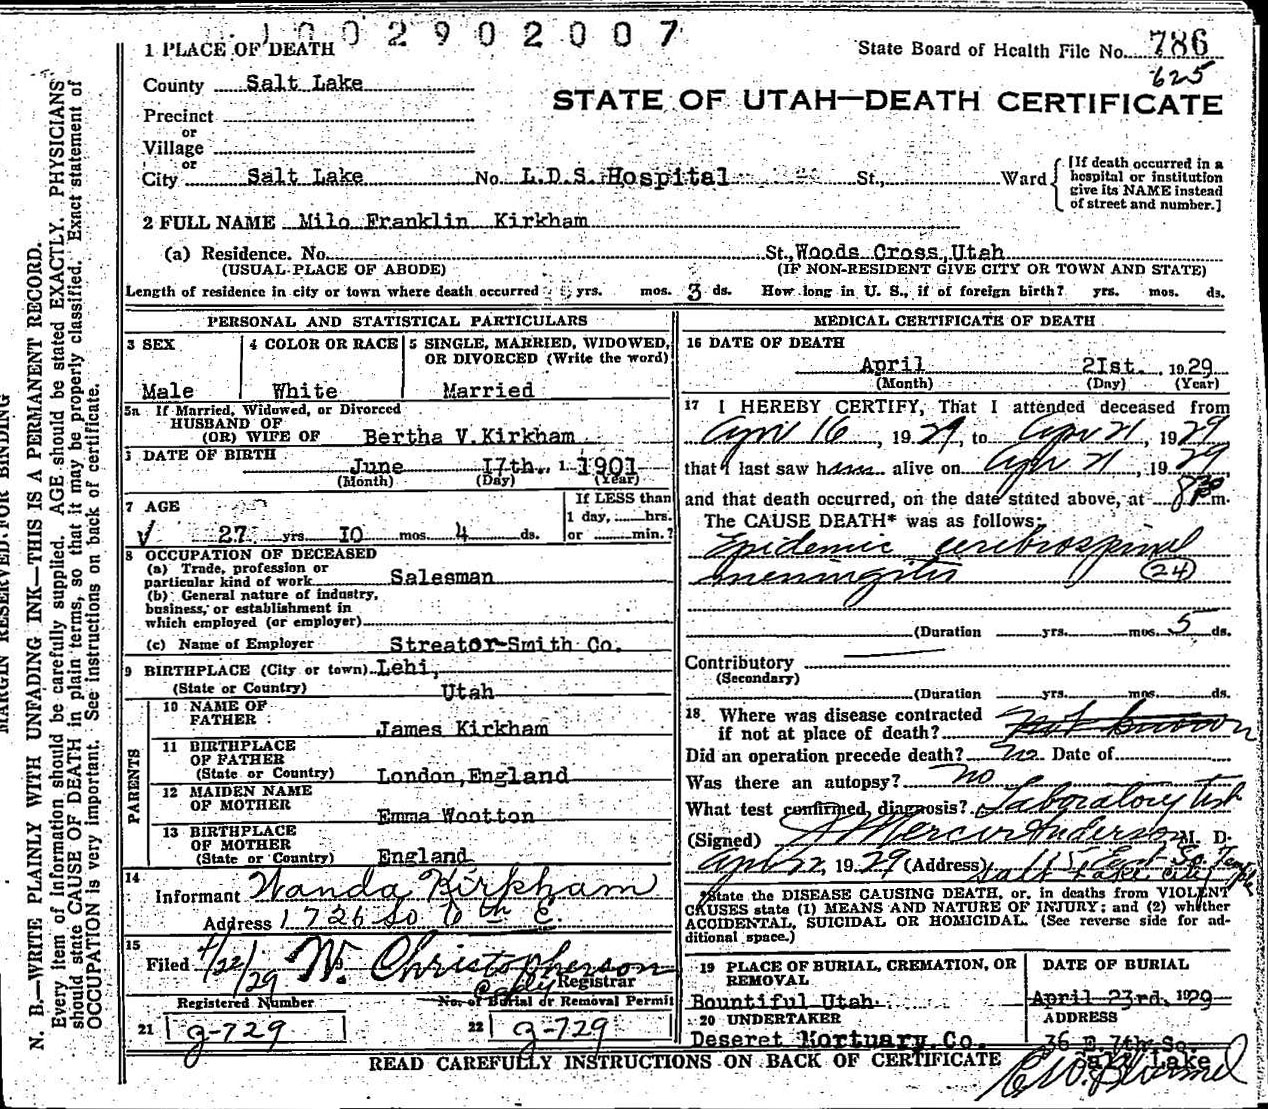 1002902007
1 PLACE OF DEATH
State Board of Health File No. 786
625
County Salt Lake
STATE OF UTAH—DEATH CERTIFICATE
Precinct
or
Village
or
City Salt Lake No. L.D.S. Hospital St., Ward
[If death occurred in a
hospital or institution
give its NAME instead
of street and number.]
2 FULL NAME Milo Franklin Kirkham
(a) Residence. No. St., Woods Cross, Utah
(USUAL PLACE OF ABODE) (IF NON-RESIDENT GIVE CITY OR TOWN AND STATE)
Length of residence in city or town where death occurred yrs. mos. 3 ds. How long in U. S., if of foreign birth? yrs. mos. ds.
PERSONAL AND STATISTICAL PARTICULARS
3 SEX
Male
4 COLOR OR RACE
White
5 SINGLE, MARRIED, WIDOWED,
OR DIVORCED (Write the word)
Married
5a If Married, Widowed, or Divorced
HUSBAND OF
(OR) WIFE OF Bertha V. Kirkham
DATE OF BIRTH
June 17th. 1901
(Month) (Day) (Year)
7 AGE
27 yrs. 10 mos. 4 ds.
If LESS than
1 day, hrs.
or min.?
8 OCCUPATION OF DECEASED
(a) Trade, profession or
particular kind of work Salesman
(b) General nature of industry,
business, or establishment in
which employed (or employer)
(c) Name of Employer Streator-Smith Co.
9 BIRTHPLACE (City or town) Lehi,
(State or Country) Utah
PARENTS
10 NAME OF
FATHER James Kirkham
11 BIRTHPLACE
OF FATHER
(State or Country) London, England
12 MAIDEN NAME
OF MOTHER Emma Wootton
13 BIRTHPLACE
OF MOTHER
(State or Country) England
14
Informant Wanda Kirkham
Address 1726 So 6th E.
15
Filed 4/22/29 W. Christopherson
Registrar
Registered Number
21 g-729
No. of Burial or Removal Permit
22 g-729
MEDICAL CERTIFICATE OF DEATH
16 DATE OF DEATH
April 21st. 1929
(Month) (Day) (Year)
17 I HEREBY CERTIFY, That I attended deceased from
Apr 16, 1929, to Apr 21, 1929
that I last saw him alive on Apr 21, 1929
and that death occurred, on the date stated above, at 8 30 P.m.
The CAUSE DEATH* was as follows:
Epidemic cerebrospinal
meningitis (24)
(Duration yrs. mos. 5 ds.
Contributory
(Secondary)
(Duration yrs. mos. ds.
18. Where was disease contracted
if not at place of death? Not known
Did an operation precede death? no Date of
Was there an autopsy? no
What test confirmed diagnosis? Laboratory test
(Signed) J Mercer Anderson M. D.
Apr 22, 1929 (Address) 115 East So Temple
Salt Lake City
*State the DISEASE CAUSING DEATH, or, in deaths from VIOLENT
CAUSES state (1) MEANS AND NATURE OF INJURY; and (2) whether
ACCIDENTAL, SUICIDAL OR HOMICIDAL. (See reverse side for ad-
ditional space.)
19 PLACE OF BURIAL, CREMATION, OR
REMOVAL
Bountiful Utah
DATE OF BURIAL
April 23rd, 1929
20 UNDERTAKER
Deseret Mortuary Co.
ADDRESS
36 E. 7th So.
Salt Lake
READ CAREFULLY INSTRUCTIONS ON BACK OF CERTIFICATE
MARGIN RESERVED FOR BINDING
N. B.—WRITE PLAINLY WITH UNFADING INK—THIS IS A PERMANENT RECORD.
Every item of information should be carefully supplied. AGE should be stated EXACTLY. PHYSICIANS
should state CAUSE OF DEATH in plain terms, so that it may be properly classified. Exact statement of
OCCUPATION is very important. See instructions on back of certificate.